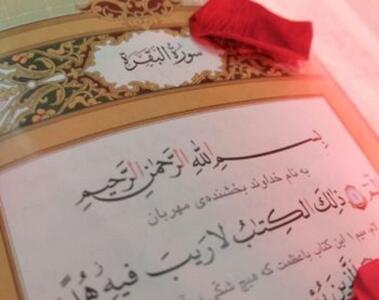 سُورَةُ الْبَقَرَةِ
بِسْمِ اللَّهِ الرَّحْمَٰنِ الرَّحِيمِ
به نام خداوند بخشنده‌ی مهربان
ذَٰلِكَ الْكِتَٰبُ لَا رَيْبَ فِيهِ هُدًى
این کتاب باعظمت که هیچ شکی